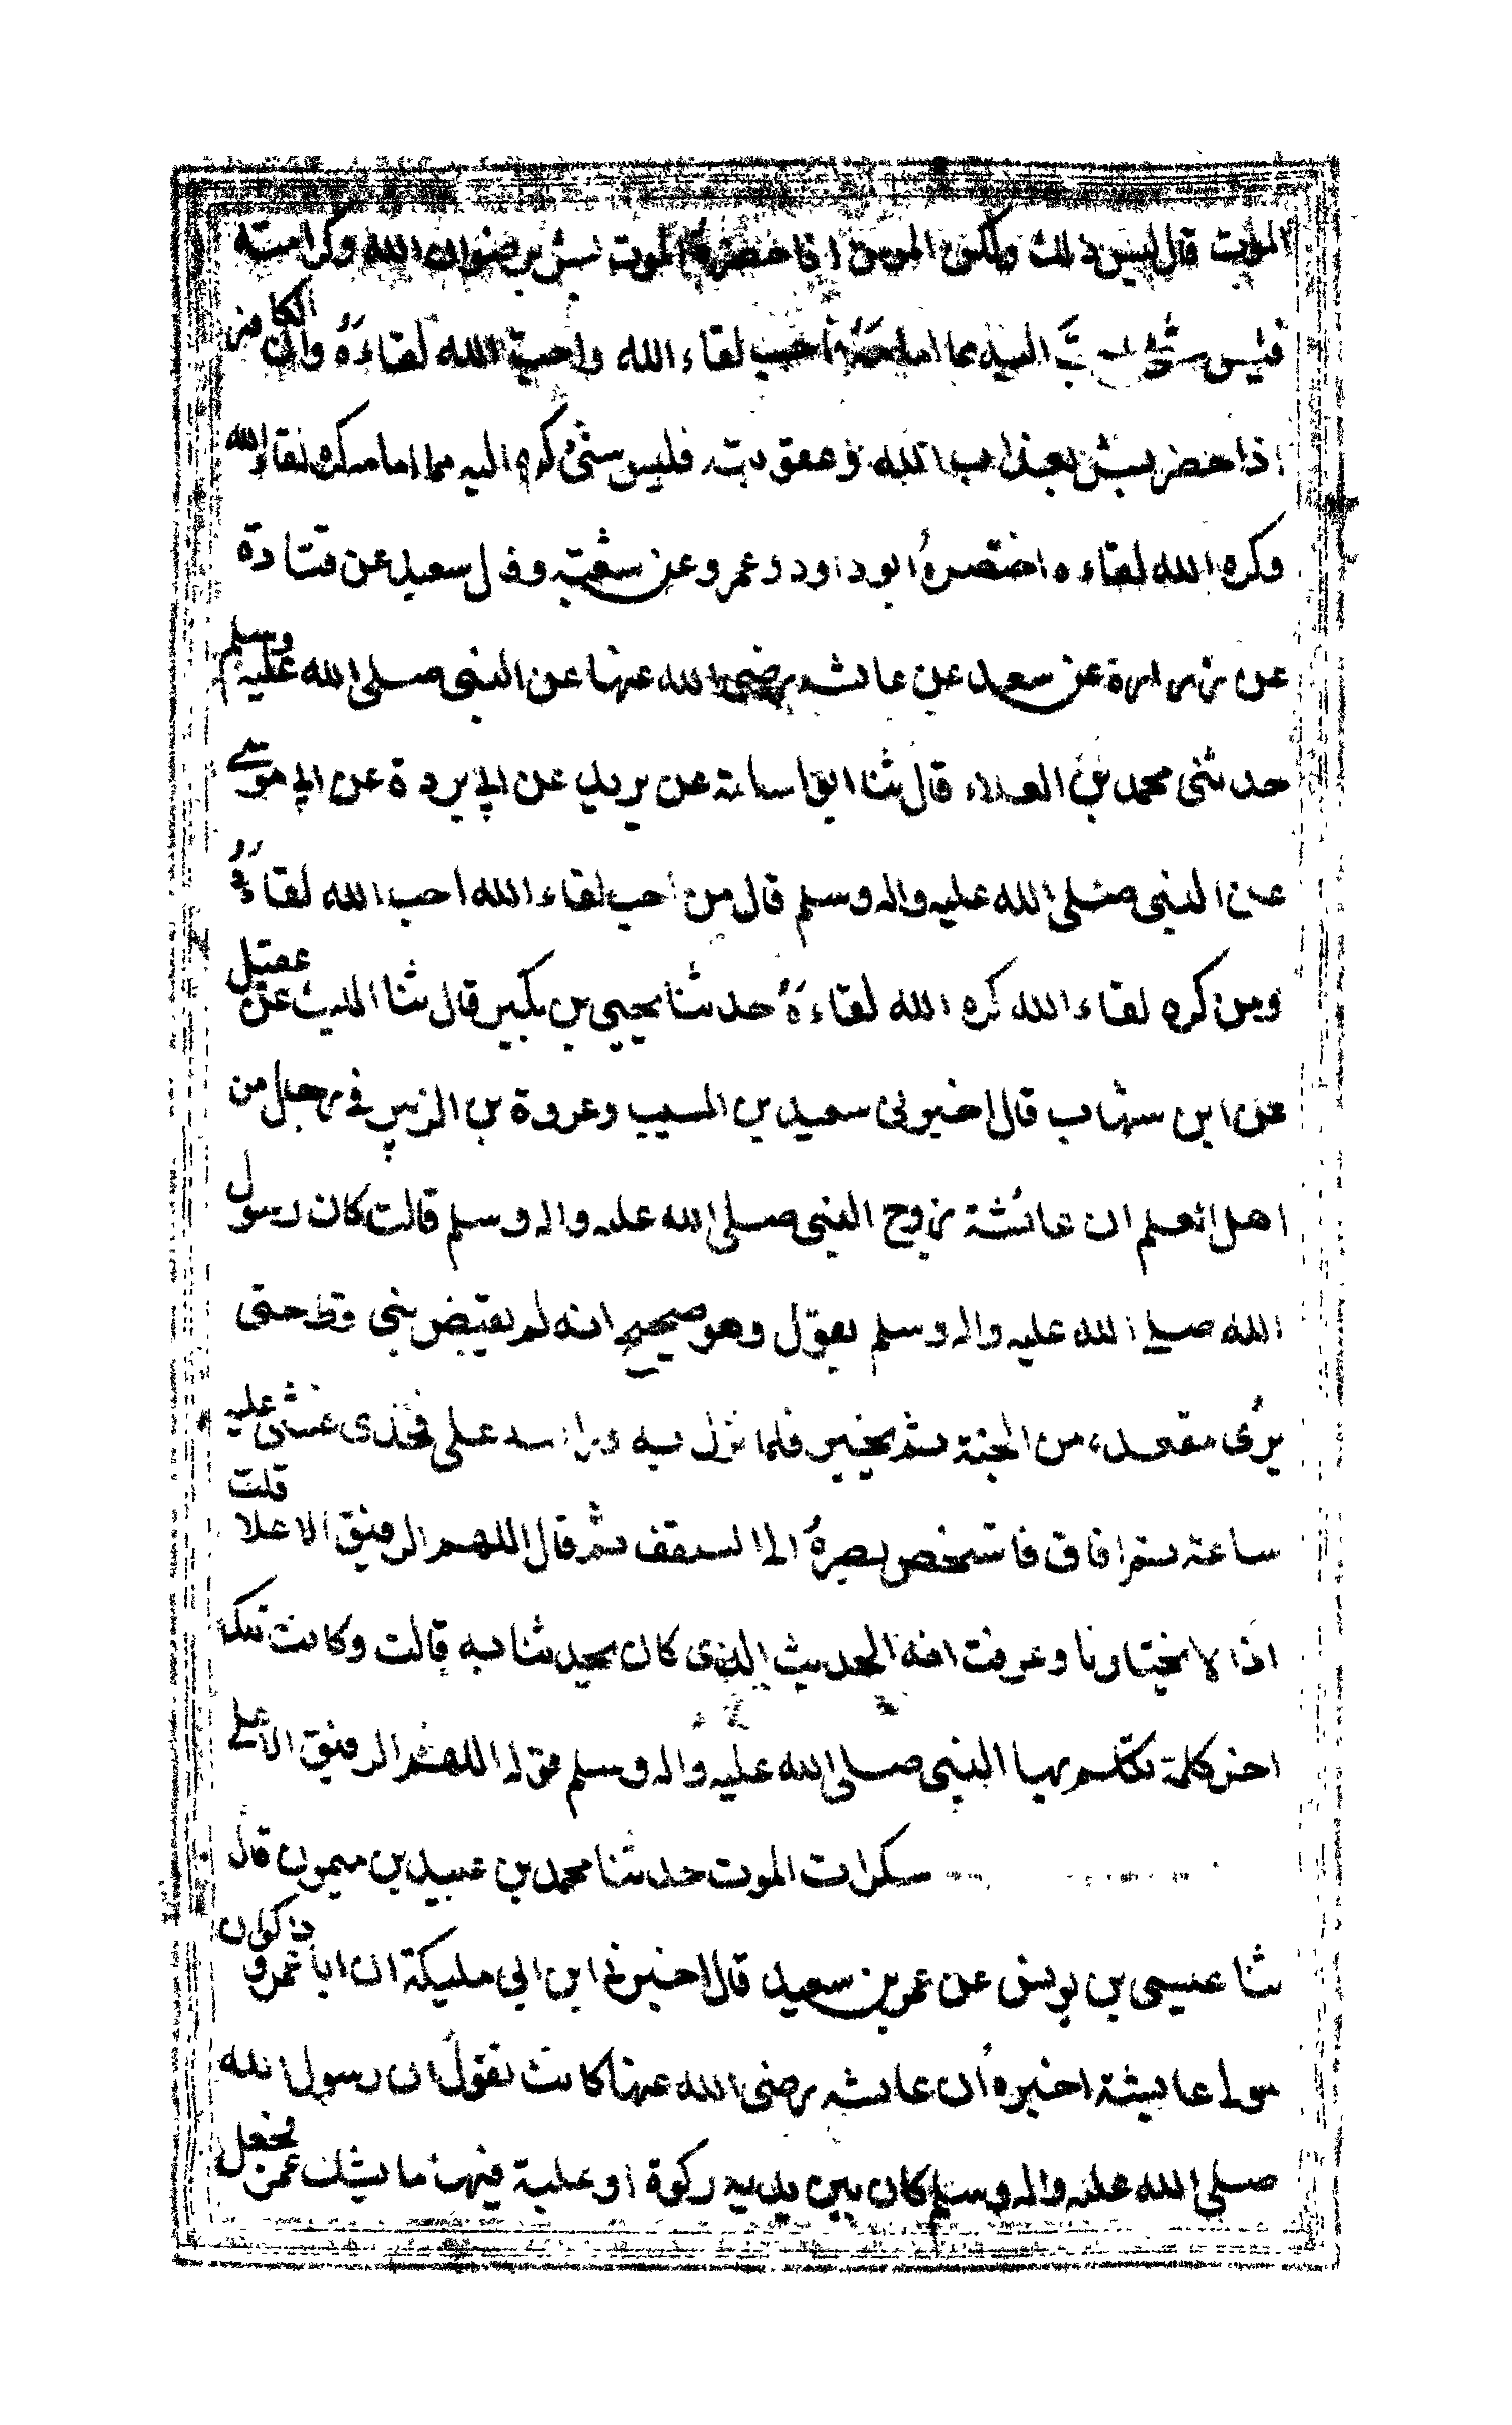 الموت قال ليس ذلك ولكن المومن اذا حضره الموت بشر برضوان الله وكرامته
فليس شئ احب اليه مما امامه فاحب لقاء الله واحب الله لقاءه وان الكافر
اذا حضر بشر بعذاب الله وعقوبته فليس شئ اكره اليه مما امامه كره لقاء الله
وكره الله لقاءه اختصره ابو داود وعمرو عن شعبة وقال سعيد عن قتادة
عن زرارة عن سعد عن عائشه رضى الله عنها عن النبى صلى الله عليه وسلم
حدثنى محمد بن العلاء قال ثنا ابو اسامة عن بريد عن ابى بردة عن ابى موسى
عن النبى صلى الله عليه واله وسلم قال من احب لقاء الله احب الله لقاءه
ومن كره لقاء الله كره الله لقاءه حدثنا يحيى بن بكير قال ثنا الليث عن عقيل
عن ابن شهاب قال اخبرنى سعيد بن المسيب وعروة بن الزبير فى رجل من
اهل العلم ان عائشة زوج النبى صلى الله عليه واله وسلم قالت كان رسول
الله صلى الله عليه واله وسلم يقول وهو صحيح انه لم يقبض نبى قط حتى
يرى مقعده من الجنة ثم يخير فلما نزل به وراسه على فخذى غشى عليه
ساعة ثم افاق فاشخص بصره الى السقف ثم قال اللهم الرفيق الاعلا قلت
اذا لا يختارنا وعرفت انه الحديث الذى كان يحدثنا به قالت وكانت تلك
اخر كلمة تكلم بها النبى صلى الله عليه واله وسلم قوله اللهم الرفيق الاعلى
سكرات الموت حدثنا محمد بن عبيد بن ميمون قال
ثنا عيسى بن يونس عن عمر بن سعيد قال اخبرنى ابن ابى مليكة ان ابا عمرو ذكوان
مولى عائشة اخبره ان عائشه رضى الله عنها كانت تقول ان رسول الله
صلى الله عليه واله وسلم كان بين يديه ركوة او علبة فيها ماء يشك عمر فجعل